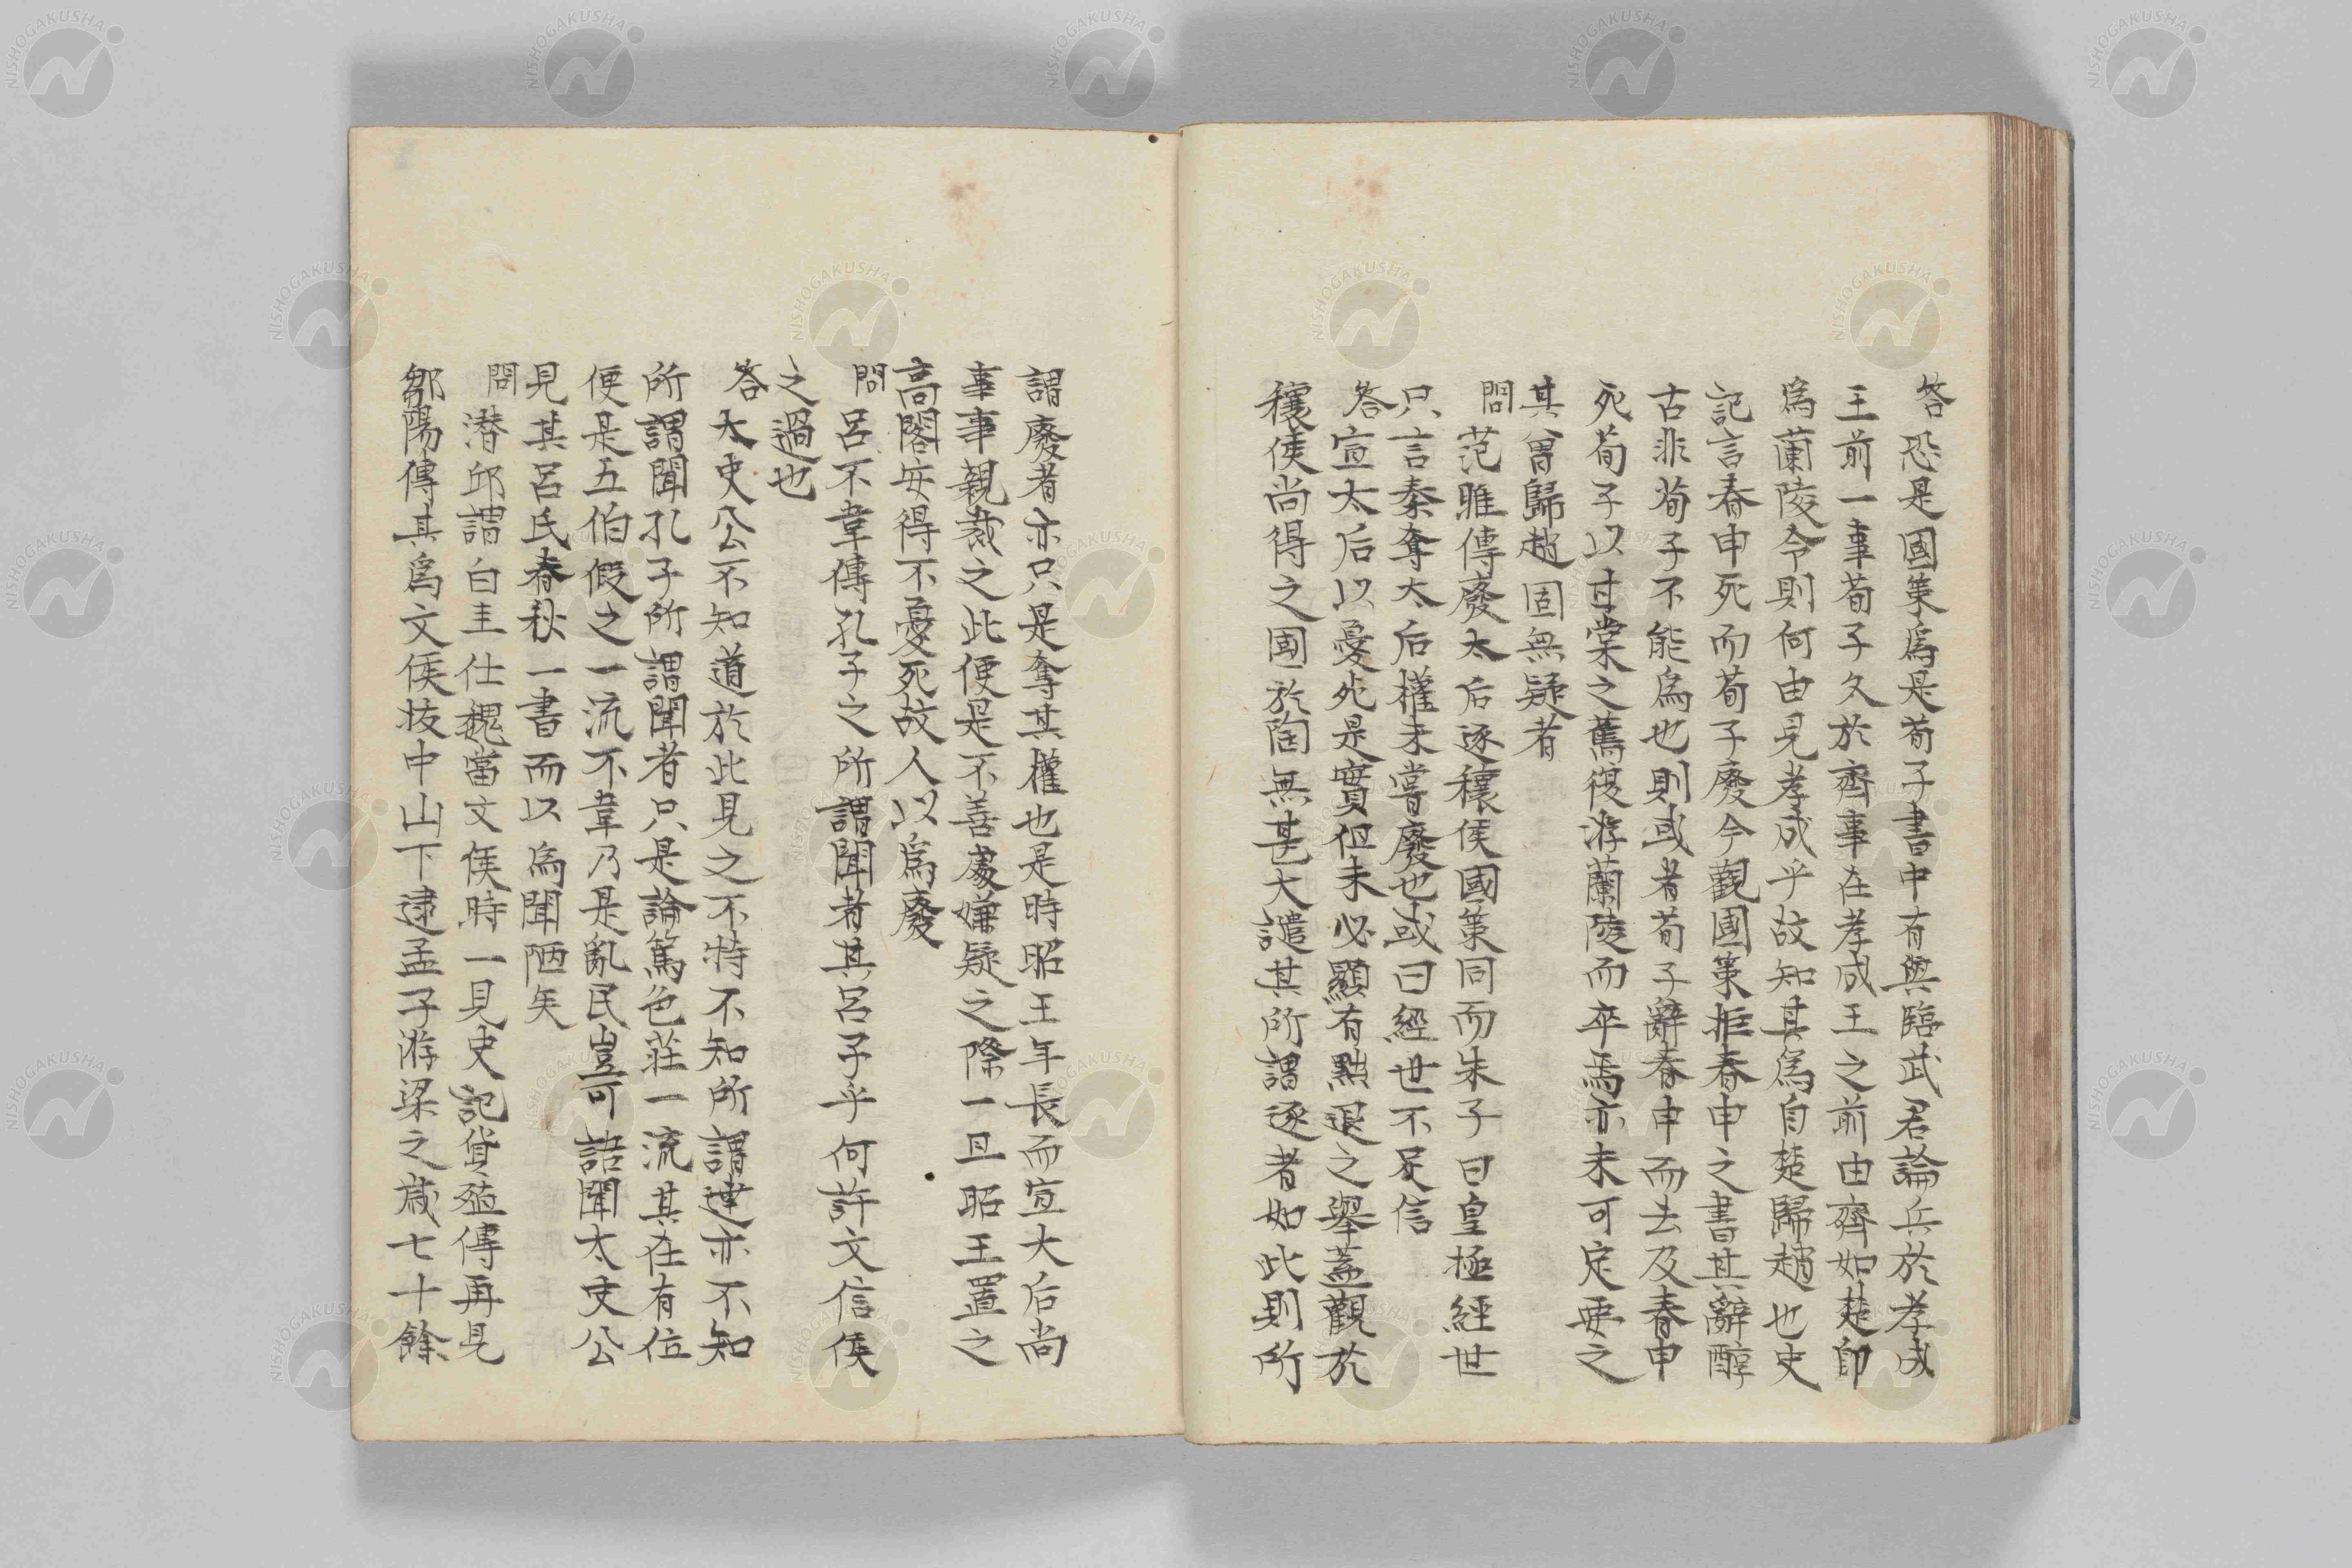 答恐是國策爲是荀子書中有與臨武君論兵於孝成
王前一事荀子久於齊事在孝成王之前由齊如楚卽
爲蘭陵令則何由見孝成乎故知其爲自楚歸趙也史
記言春申死而荀子廢今觀國策拒春申之書其辭醇
古非荀子不能爲也則或者荀子辭春申而去及春申
死荀子以甘棠之舊復游蘭陵而卒焉亦未可定要之
其曾歸趙固無疑者
問范雎傳廢太后逐穰侯國策同而朱子曰皇極經世
只言秦奪太后權未嘗廢也或曰經世不足信
答宣太后以憂死是實但未必顯有黜退之舉蓋觀於
穰侯尚得之國於陶無甚大譴其所謂逐者如此則所
謂廢者亦只是奪其權也是時昭王年長而宣大后尚
事事親裁之此便是不善處嫌疑之際一旦昭王置之
高閣安得不憂死故人以爲廢
問呂不韋傳孔子之所謂聞者其呂子乎何許文信侯
之過也
答大史公不知道於此見之不特不知所謂達亦不知
所謂聞孔子所謂聞者只是論篤色莊一流其在有位
便是五伯假之一流不韋乃是亂民豈可語聞太史公
見其呂氏春秋一書而以爲聞陋矣
問潛邱謂白圭仕魏當文侯時一見史記貨殖傳再見
鄒陽傳其爲文侯拔中山下逮孟子游梁之歲七十餘
NISHOGAKUSHA